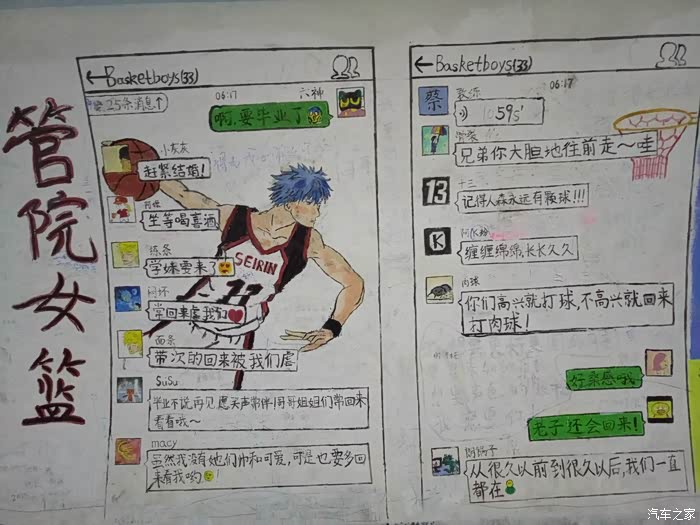 管院女篮
←Basketboys(33)
06:17
六神
25条消息↑
啊,要毕业了
小灰灰
赶紧结婚!
坐等喝喜酒
SEIRIN
11
学妹要来了
常回来虐我们
面条
带次的回来被我们虐
SuSu
毕业不说再见,愿友声常伴~哥哥姐姐们常回来
看看哦~
macy
虽然我没有她们帅和可爱,可是也要多回
来看我哟
←Basketboys(33)
06:17
蔡
59s'
兄弟你大胆地往前走~哇
13
十三
记得人森永远有颗球!!!
K
缠缠绵绵,长长久久
肉球
你们高兴就打球,不高兴就回来
打肉球!
好桑感哦
老子还会回来!
从很久以前到很久以后,我们一直
都在
汽车之家